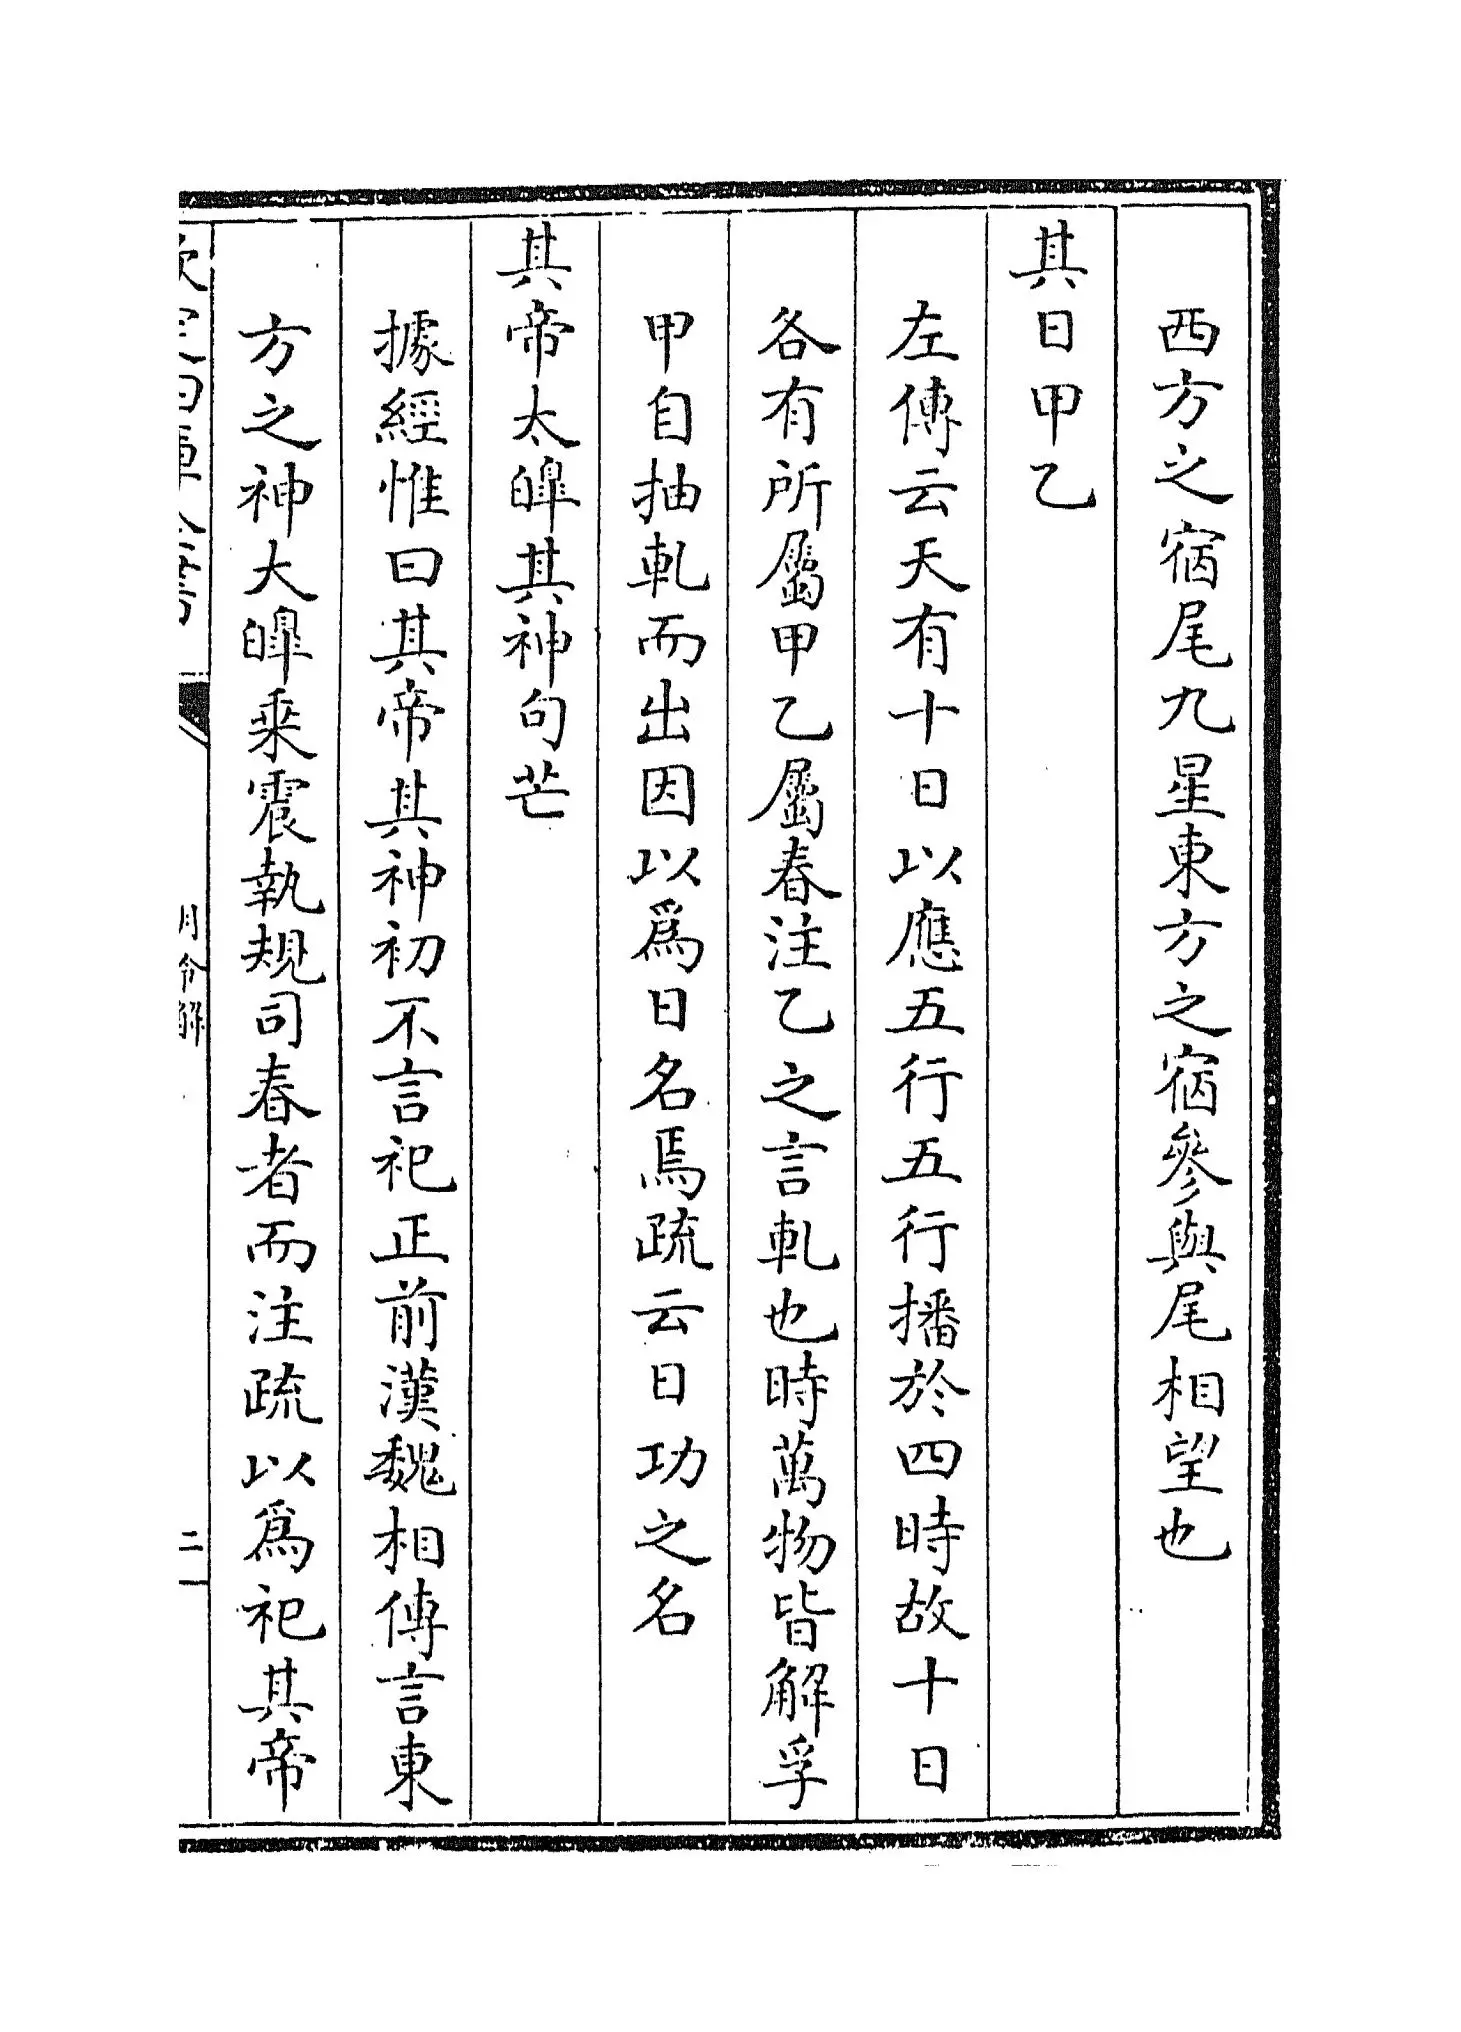 西方之宿尾九星東方之宿參與尾相望也
其日甲乙
左傳云天有十日以應五行五行播於四時故十日
各有所屬甲乙屬春注乙之言軋也時萬物皆解孚
甲自抽軋而出因以為日名焉疏云日功之名
其帝太皞其神句芒
據經惟曰其帝其神初不言祀正前漢魏相傳言東
方之神大皞乘震執規司春者而注疏以為祀其帝
欽定四庫全書
月令解
二